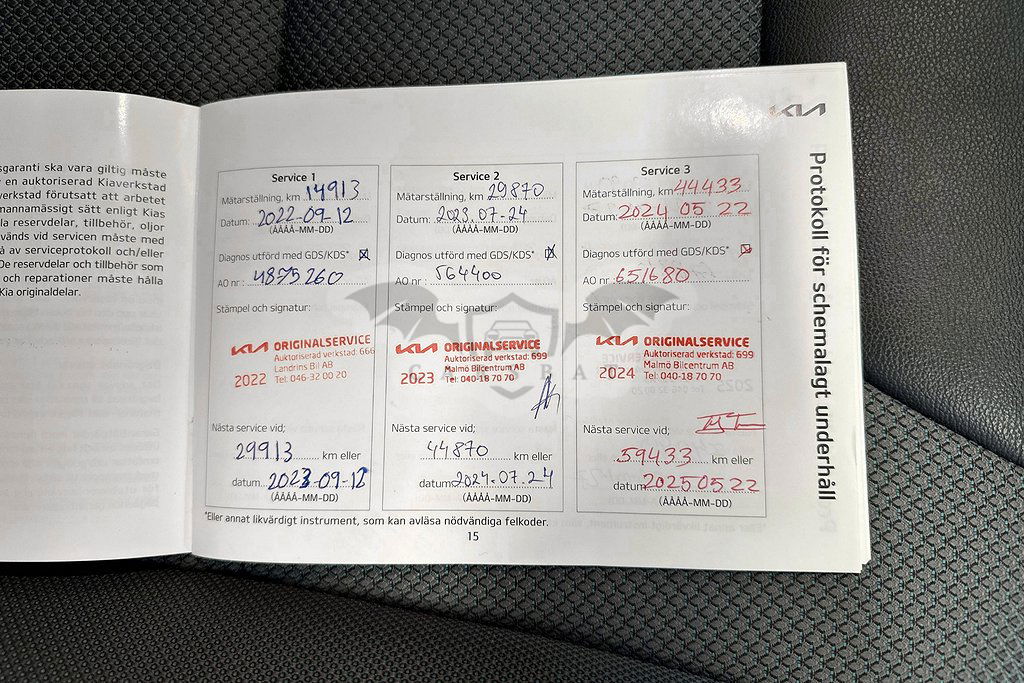 sgaranti ska vara giltig måste
en auktoriserad Kiaverkstad
verkstad förutsatt att arbetet
mannamässigt sätt enligt Kias
la reservdelar, tillbehör, oljor
vänds vid servicen måste med
å av serviceprotokoll och/eller
De reservdelar och tillbehör som
och reparationer måste hålla
Kia originaldelar.
KIA
Protokoll för schemalagt underhåll
Service 1
Mätarställning, km 14913
Datum: 2022-09-12
(ÅÅÅÅ-MM-DD)
Diagnos utförd med GDS/KDS* ☒
AO nr : 4875260
Stämpel och signatur:
KIA ORIGINALSERVICE
Auktoriserad verkstad: 666
Landrins Bil AB
2022 Tel: 046-32 00 20
Nästa service vid;
29913 km eller
datum 2023-09-12
(ÅÅÅÅ-MM-DD)
Service 2
Mätarställning, km 29870
Datum: 2023.07-24
(ÅÅÅÅ-MM-DD)
Diagnos utförd med GDS/KDS* ☒
AO nr : 564400
Stämpel och signatur:
KIA ORIGINALSERVICE
Auktoriserad verkstad: 699
Malmö Bilcentrum AB
2023 Tel: 040-18 70 70
Nästa service vid;
44870 km eller
datum 2024.07.24
(ÅÅÅÅ-MM-DD)
Service 3
Mätarställning, km 44433
Datum: 2024 05 22
(ÅÅÅÅ-MM-DD)
Diagnos utförd med GDS/KDS* ☒
AO nr : 651680
Stämpel och signatur:
KIA ORIGINALSERVICE
Auktoriserad verkstad: 699
Malmö Bilcentrum AB
2024 Tel: 040-18 70 70
Nästa service vid;
59433 km eller
datum 2025 05 22
(ÅÅÅÅ-MM-DD)
*Eller annat likvärdigt instrument, som kan avläsa nödvändiga felkoder.
15